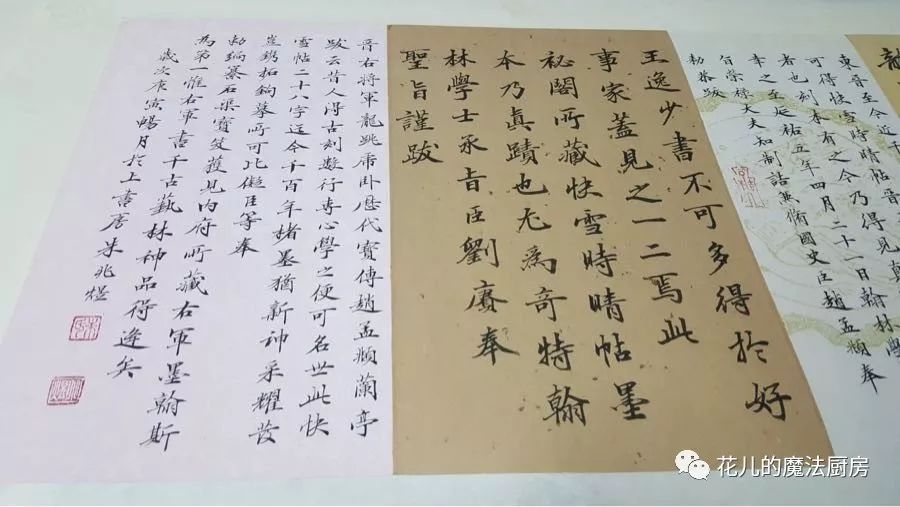 龍
東晉至今近千
可得快雪時晴帖晉
者也刻本有之今乃得見真
幸之至延祐五年四月二十一日翰林學
旨榮祿大夫知制誥兼脩國史臣趙孟頫奉
勅恭跋
王逸少書不可多得於好
事家蓋見之一二焉此
祕閣所藏快雪時晴帖墨
本乃真蹟也尤為奇特翰
林學士承旨臣劉賡奉
聖旨謹跋
晉右將軍龍跳虎卧歷代寶傳趙孟頫蘭亭
跋云昔人得古刻數行專心學之便可名世此快
雪帖二十八字迄今千百年楮墨猶新神采耀發
豈鐫拓鉤摹所可比儗臣等奉
勅編纂石渠寶笈獲見內府所藏右軍墨翰斯
為第一惟右軍書千古藝林神品得逢矣
歲次庚寅暢月於上書房朱兆煜
花儿的魔法厨房